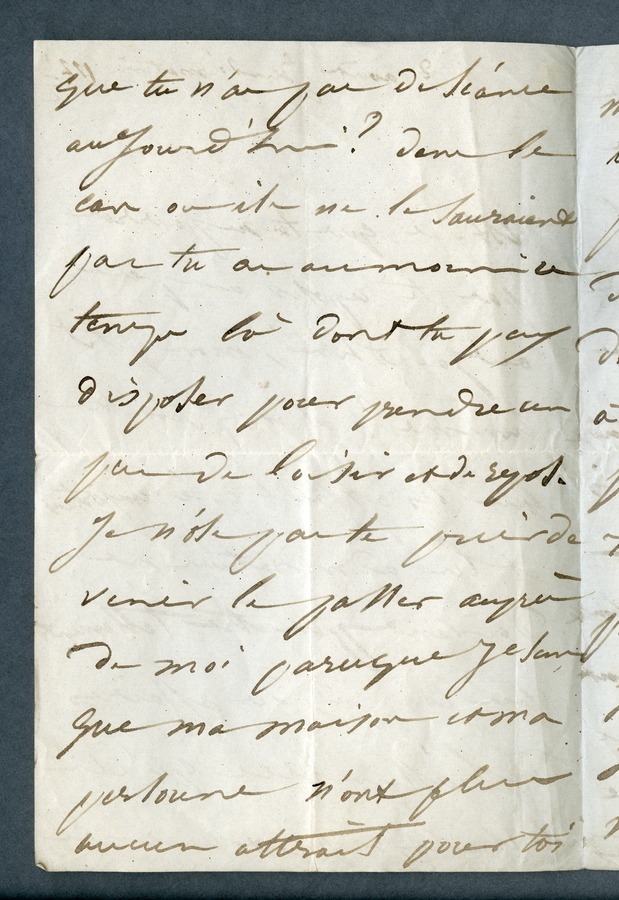 que tu n'as pas de séance
aujourd'hui ? Dans le
cas où ils ne le sauraient
pas tu as au moins ce
temps là dont tu peux
disposer pour prendre un
peu de loisir et de repos.
Je n'ose pas te prier de
venir le passer auprès
de moi parceque je sais
que ma maison et ma
personne n'ont plus
aucun attrait pour toi